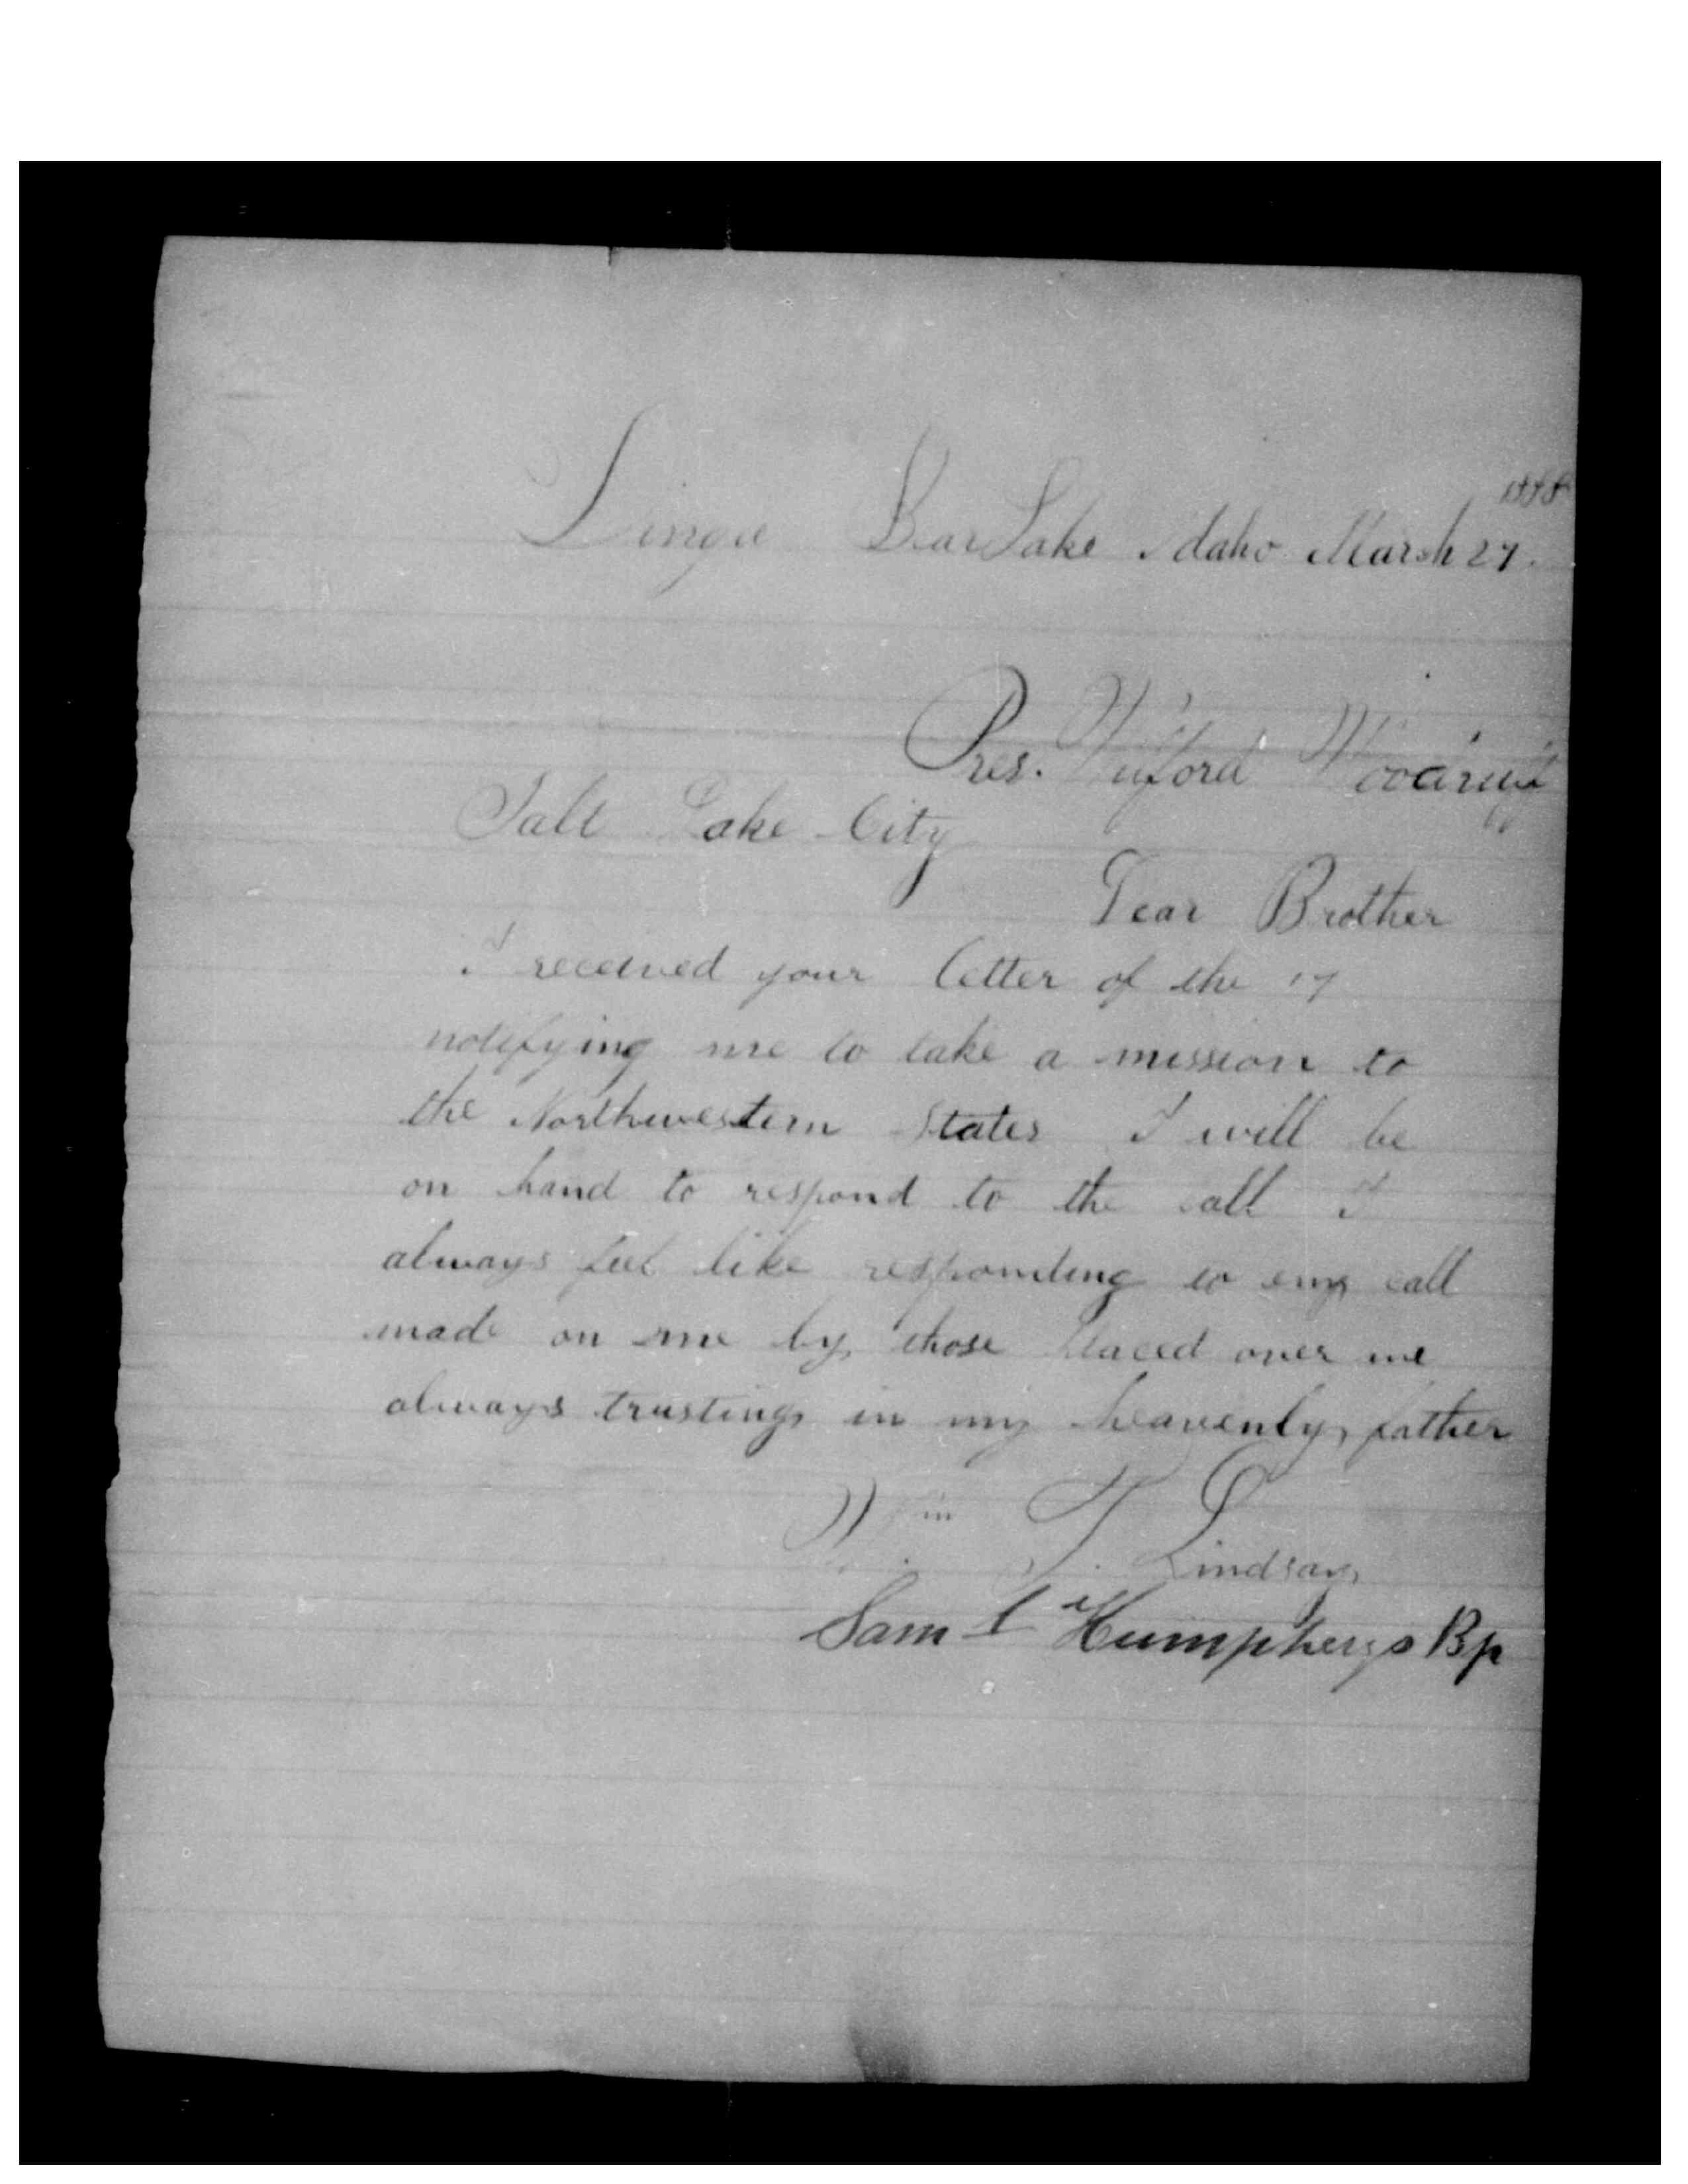 1898
Bear Lake Idaho March 27.
Pres. Wilford Woodruff
Salt Lake City
Dear Brother
I received your letter of the 17
notifying me to take a mission to
the Northwestern States I will be
on hand to respond to the call I
always feel like responding to eny call
made on me by those placed over me
always trusting in my heavenly father
Wm T. Lindsay
Saml Humpherys Bp